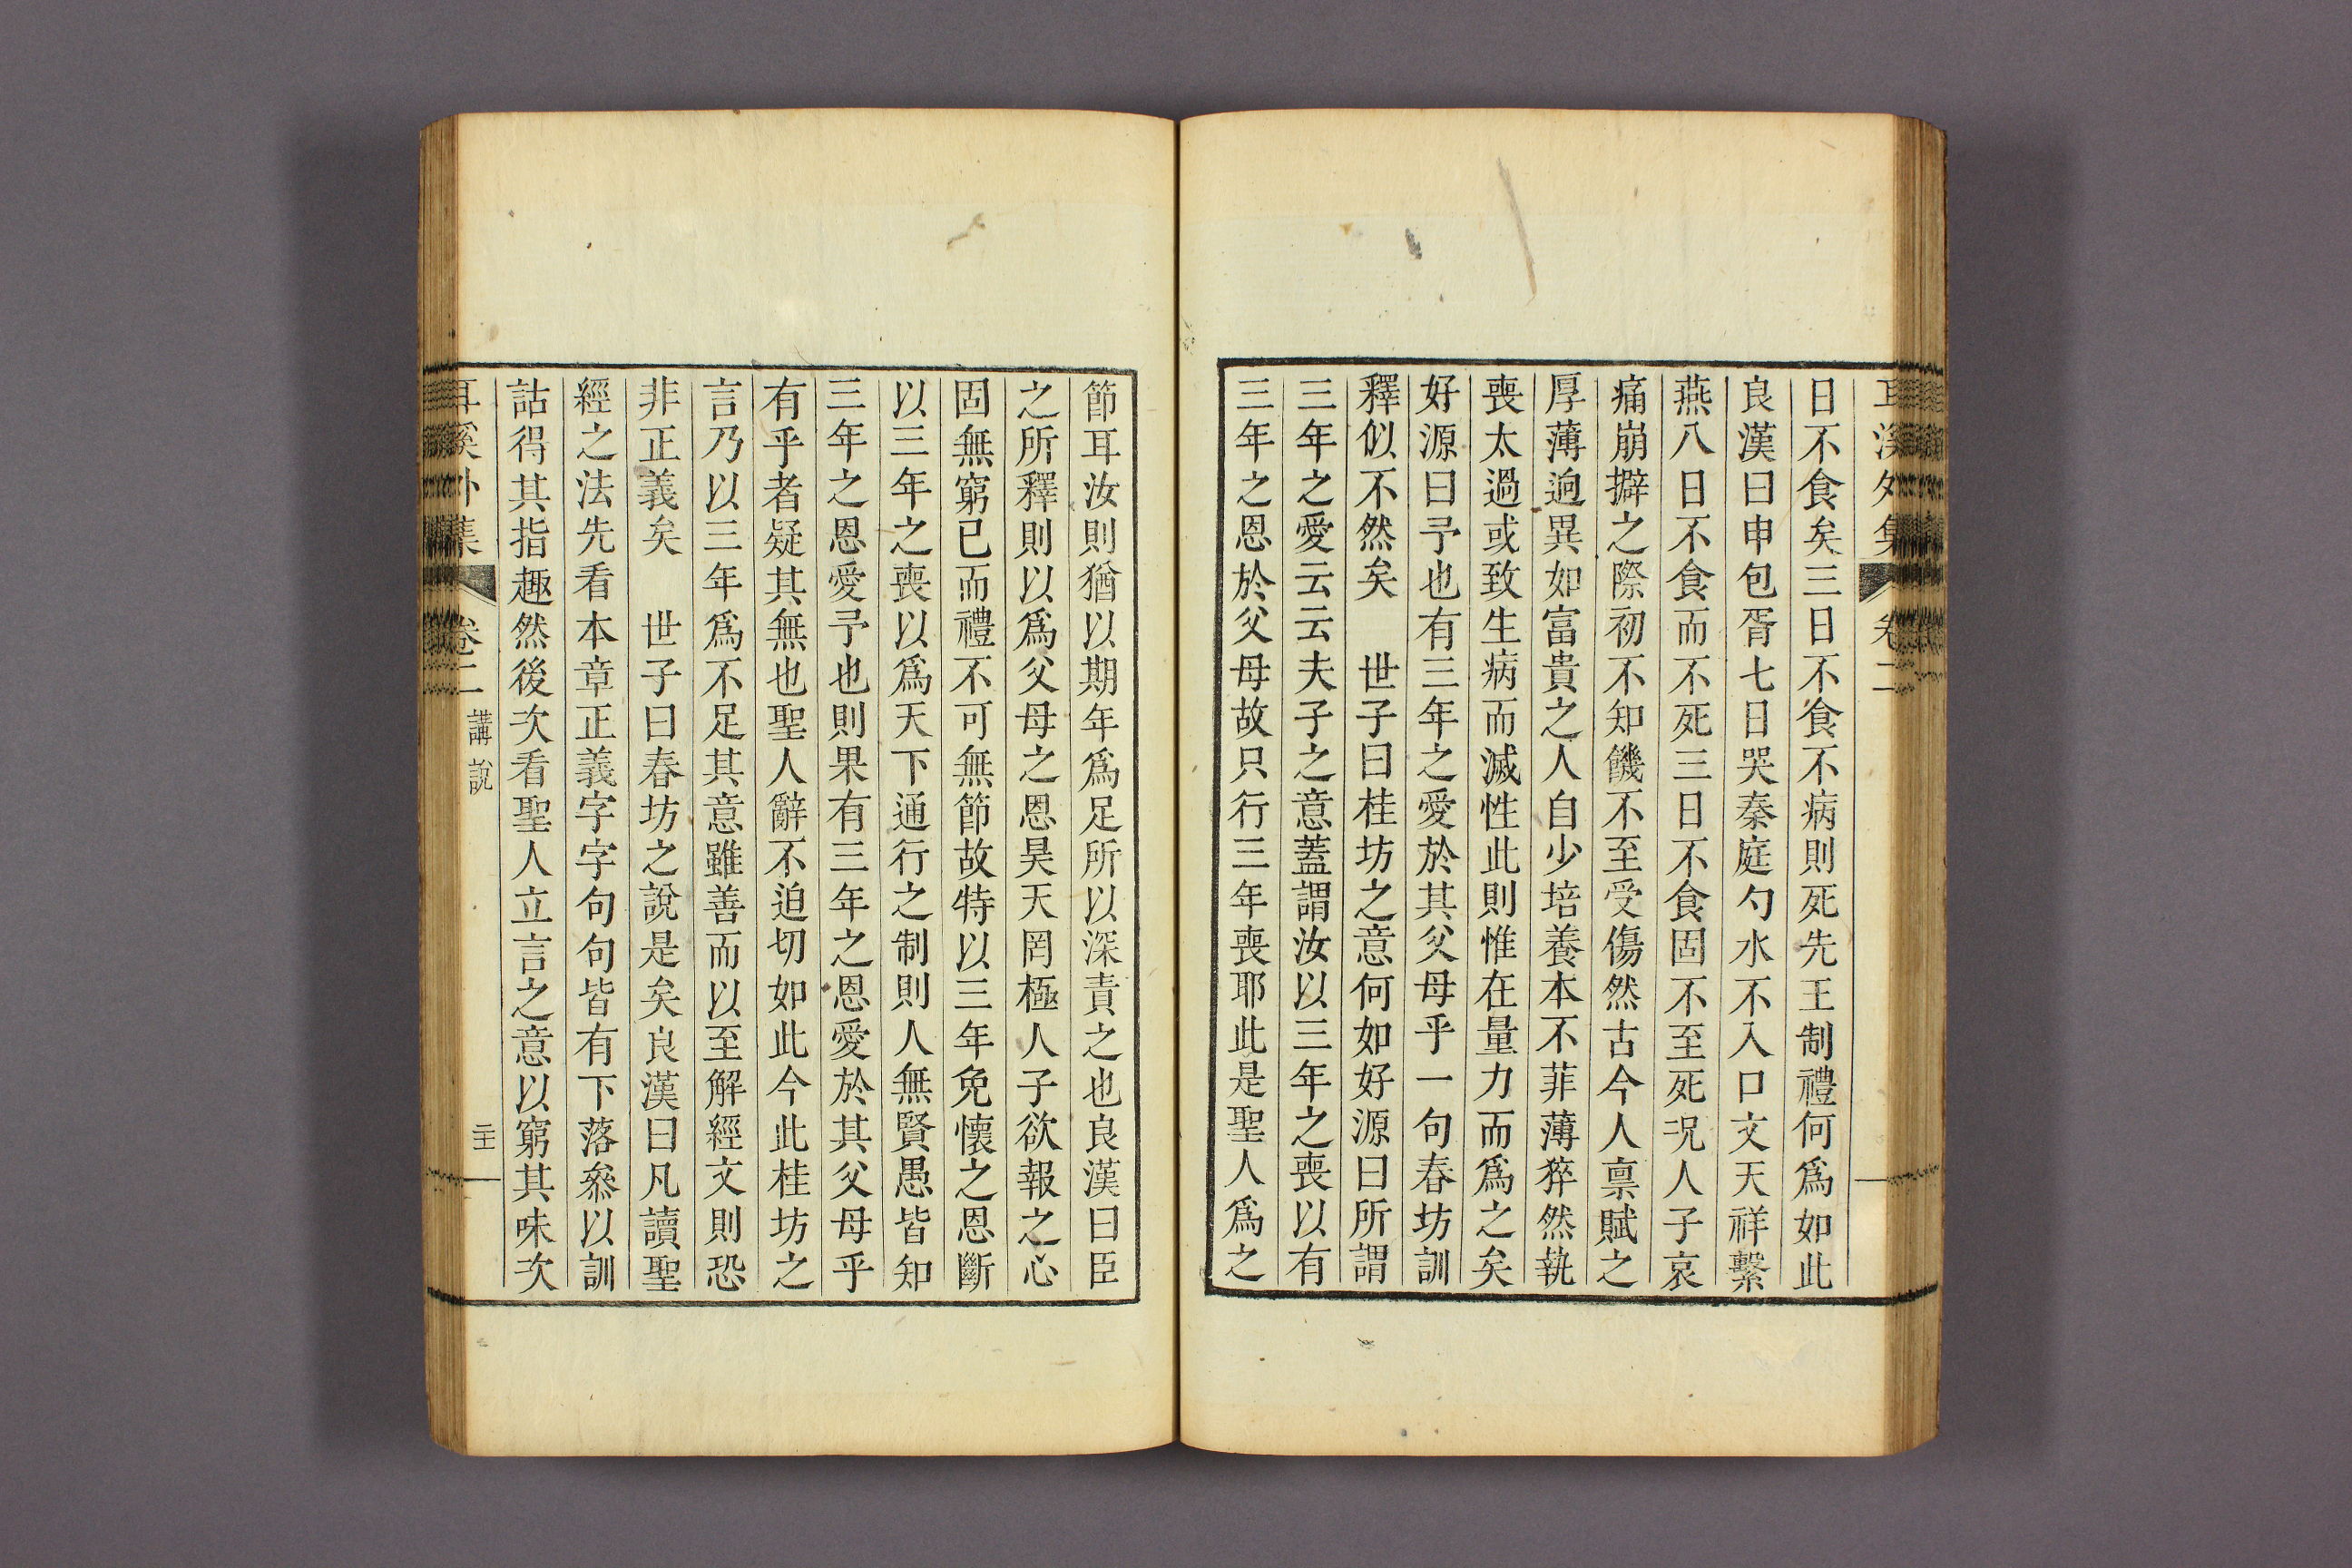 耳溪外集 卷二
日不食矣三日不食不病則死先王制禮何爲如此
良漢曰申包胥七日哭秦庭勺水不入口文天祥繫
燕八日不食而不死三日不食固不至死况人子哀
痛崩擗之際初不知饑不至受傷然古今人禀賦之
厚薄逈異如富貴之人自少培養本不菲薄猝然執
喪太過或致生病而滅性此則惟在量力而爲之矣
好源曰予也有三年之愛於其父母乎一句春坊訓
釋似不然矣　世子曰桂坊之意何如好源曰所謂
三年之愛云云夫子之意蓋謂汝以三年之喪以有
三年之恩於父母故只行三年喪耶此是聖人爲之
節耳汝則猶以期年爲足所以深責之也良漢曰臣
之所釋則以爲父母之恩昊天罔極人子欲報之心
固無窮已而禮不可無節故特以三年免懷之恩斷
以三年之喪以爲天下通行之制則人無賢愚皆知
三年之恩愛予也則果有三年之恩愛於其父母乎
有乎者疑其無也聖人辭不迫切如此今此桂坊之
言乃以三年爲不足其意雖善而以至解經文則恐
非正義矣　世子曰春坊之說是矣良漢曰凡讀聖
經之法先看本章正義字字句句皆有下落叅以訓
詁得其指趣然後次看聖人立言之意以窮其味次
耳溪外集 卷二 講說